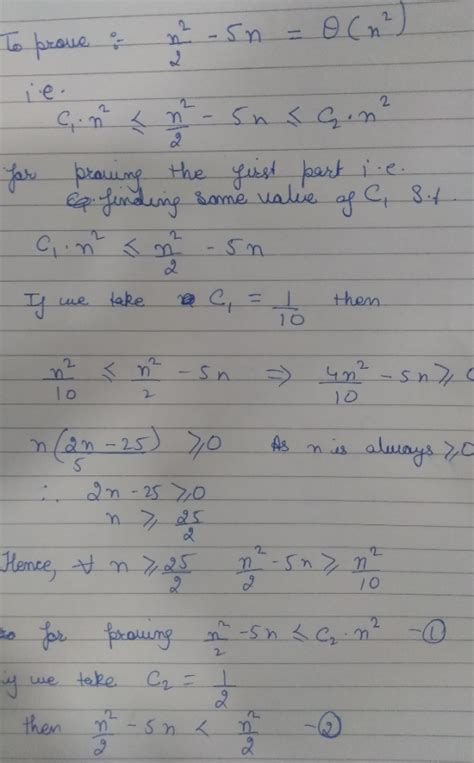 To prove :- n²/2 - 5n = θ(n²)
i.e.
C₁·n² ≤ n²/2 - 5n ≤ C₂·n²
for proving the first part i.e.
finding some value of C₁ S.t.
C₁·n² ≤ n²/2 - 5n
If we take C₁ = 1/10 then
n²/10 ≤ n²/2 - 5n ⇒ 4n²/10 - 5n ≥ 0
n(2n-25)/5 ≥ 0 As n is always ≥ 0
∴ 2n-25 ≥ 0
n ≥ 25/2
Hence, ∀ n ≥ 25/2 n²/2 - 5n ≥ n²/10
for proving n²/2 - 5n ≤ C₂·n² -①
if we take C₂ = 1/2
then n²/2 - 5n < n²/2 -②